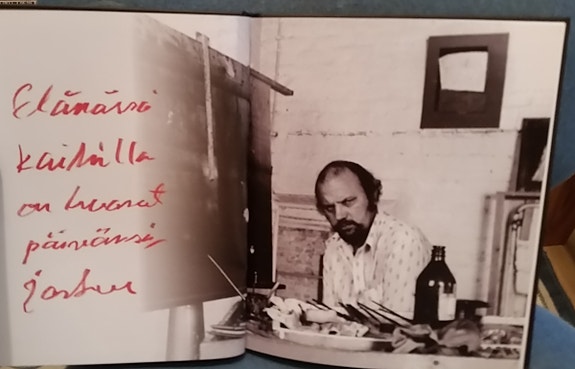 Elämässä
kaikilla
on huonot
päivänsä,